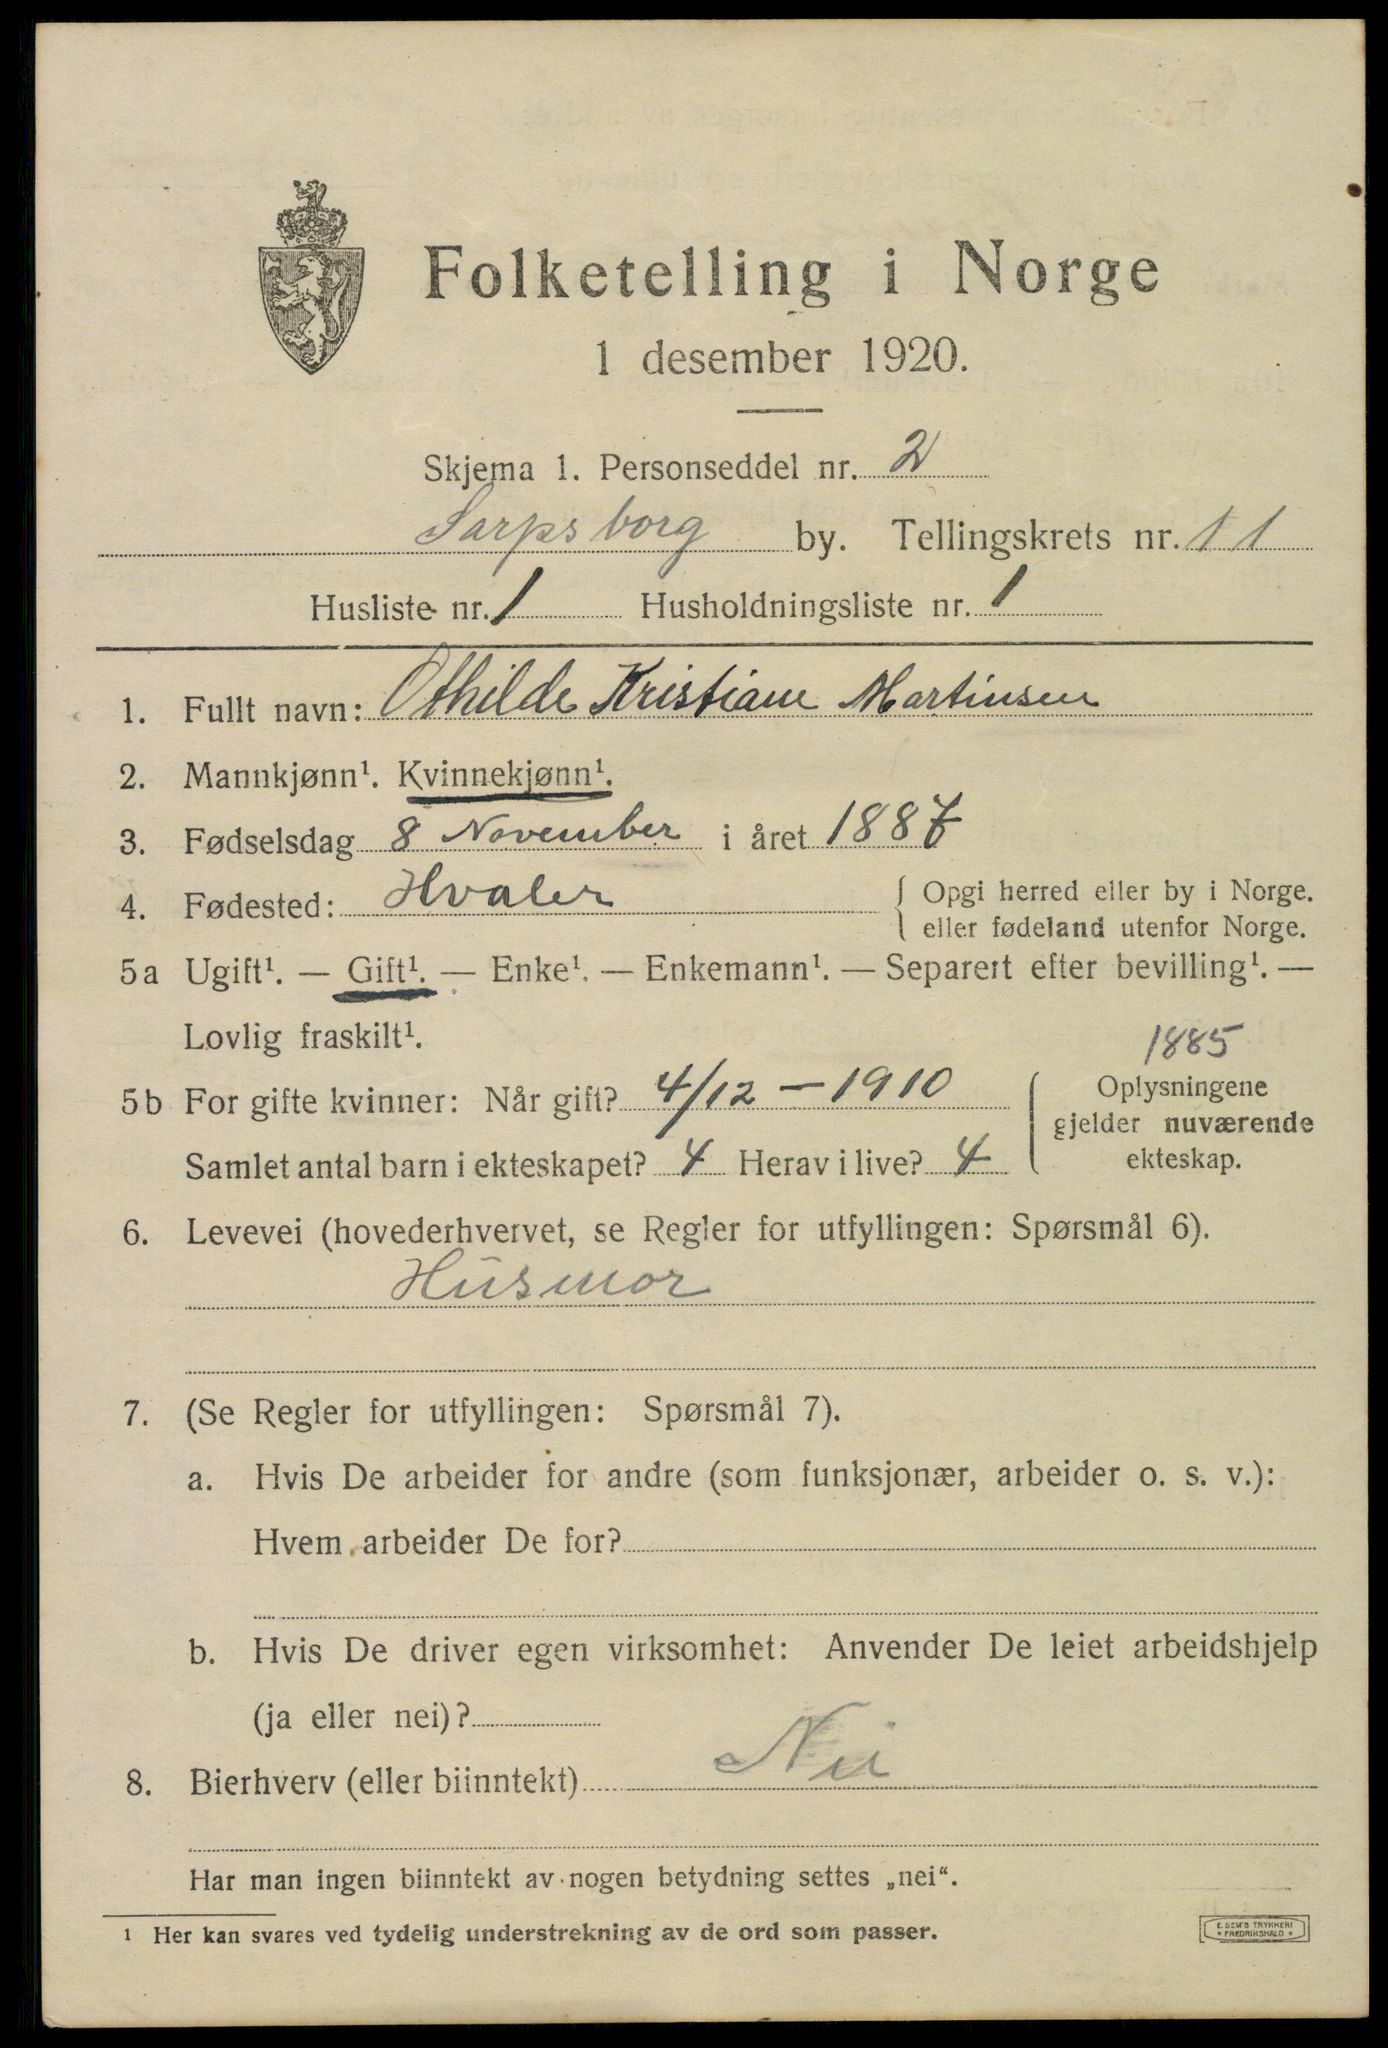 Folketelling i Norge
1 desember 1920.
Skjema 1. Personseddel nr. 2
Sarpsborg by. Tellingskrets nr. 11
Husliste nr. 1 Husholdningsliste nr. 1
1. Fullt navn: Othilde Kristiane Martinsen
2. Mannkjønn¹. Kvinnekjønn¹.
3. Fødselsdag 8 November i året 1887
4. Fødested: Hvaler { Opgi herred eller by i Norge.
eller fødeland utenfor Norge.
5a Ugift¹. — Gift¹. — Enke¹. — Enkemann¹. — Separert efter bevilling¹. —
Lovlig fraskilt¹.
1885
5b For gifte kvinner: Når gift? 4/12 — 1910 { Oplysningene
gjelder nuværende
Samlet antal barn i ekteskapet? 4 Herav i live? 4 ekteskap.
6. Levevei (hovederhvervet, se Regler for utfyllingen: Spørsmål 6).
Husmor
7. (Se Regler for utfyllingen: Spørsmål 7).
a. Hvis De arbeider for andre (som funksjonær, arbeider o. s. v.):
Hvem arbeider De for?
b. Hvis De driver egen virksomhet: Anvender De leiet arbeidshjelp
(ja eller nei)?
8. Bierhverv (eller biinntekt) Nei
Har man ingen biinntekt av nogen betydning settes „nei“.
¹ Her kan svares ved tydelig understrekning av de ord som passer.
E. SEM'S TRYKKERI
• FREDRIKSHALD •